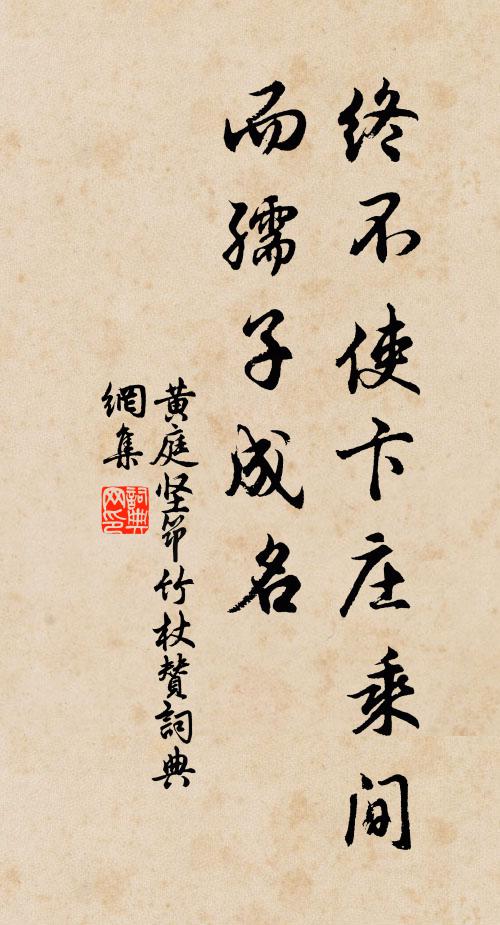 终不使卞庄乘间
而孺子成名
黄庭坚筇竹杖赞詞典
網集
詞典
网印